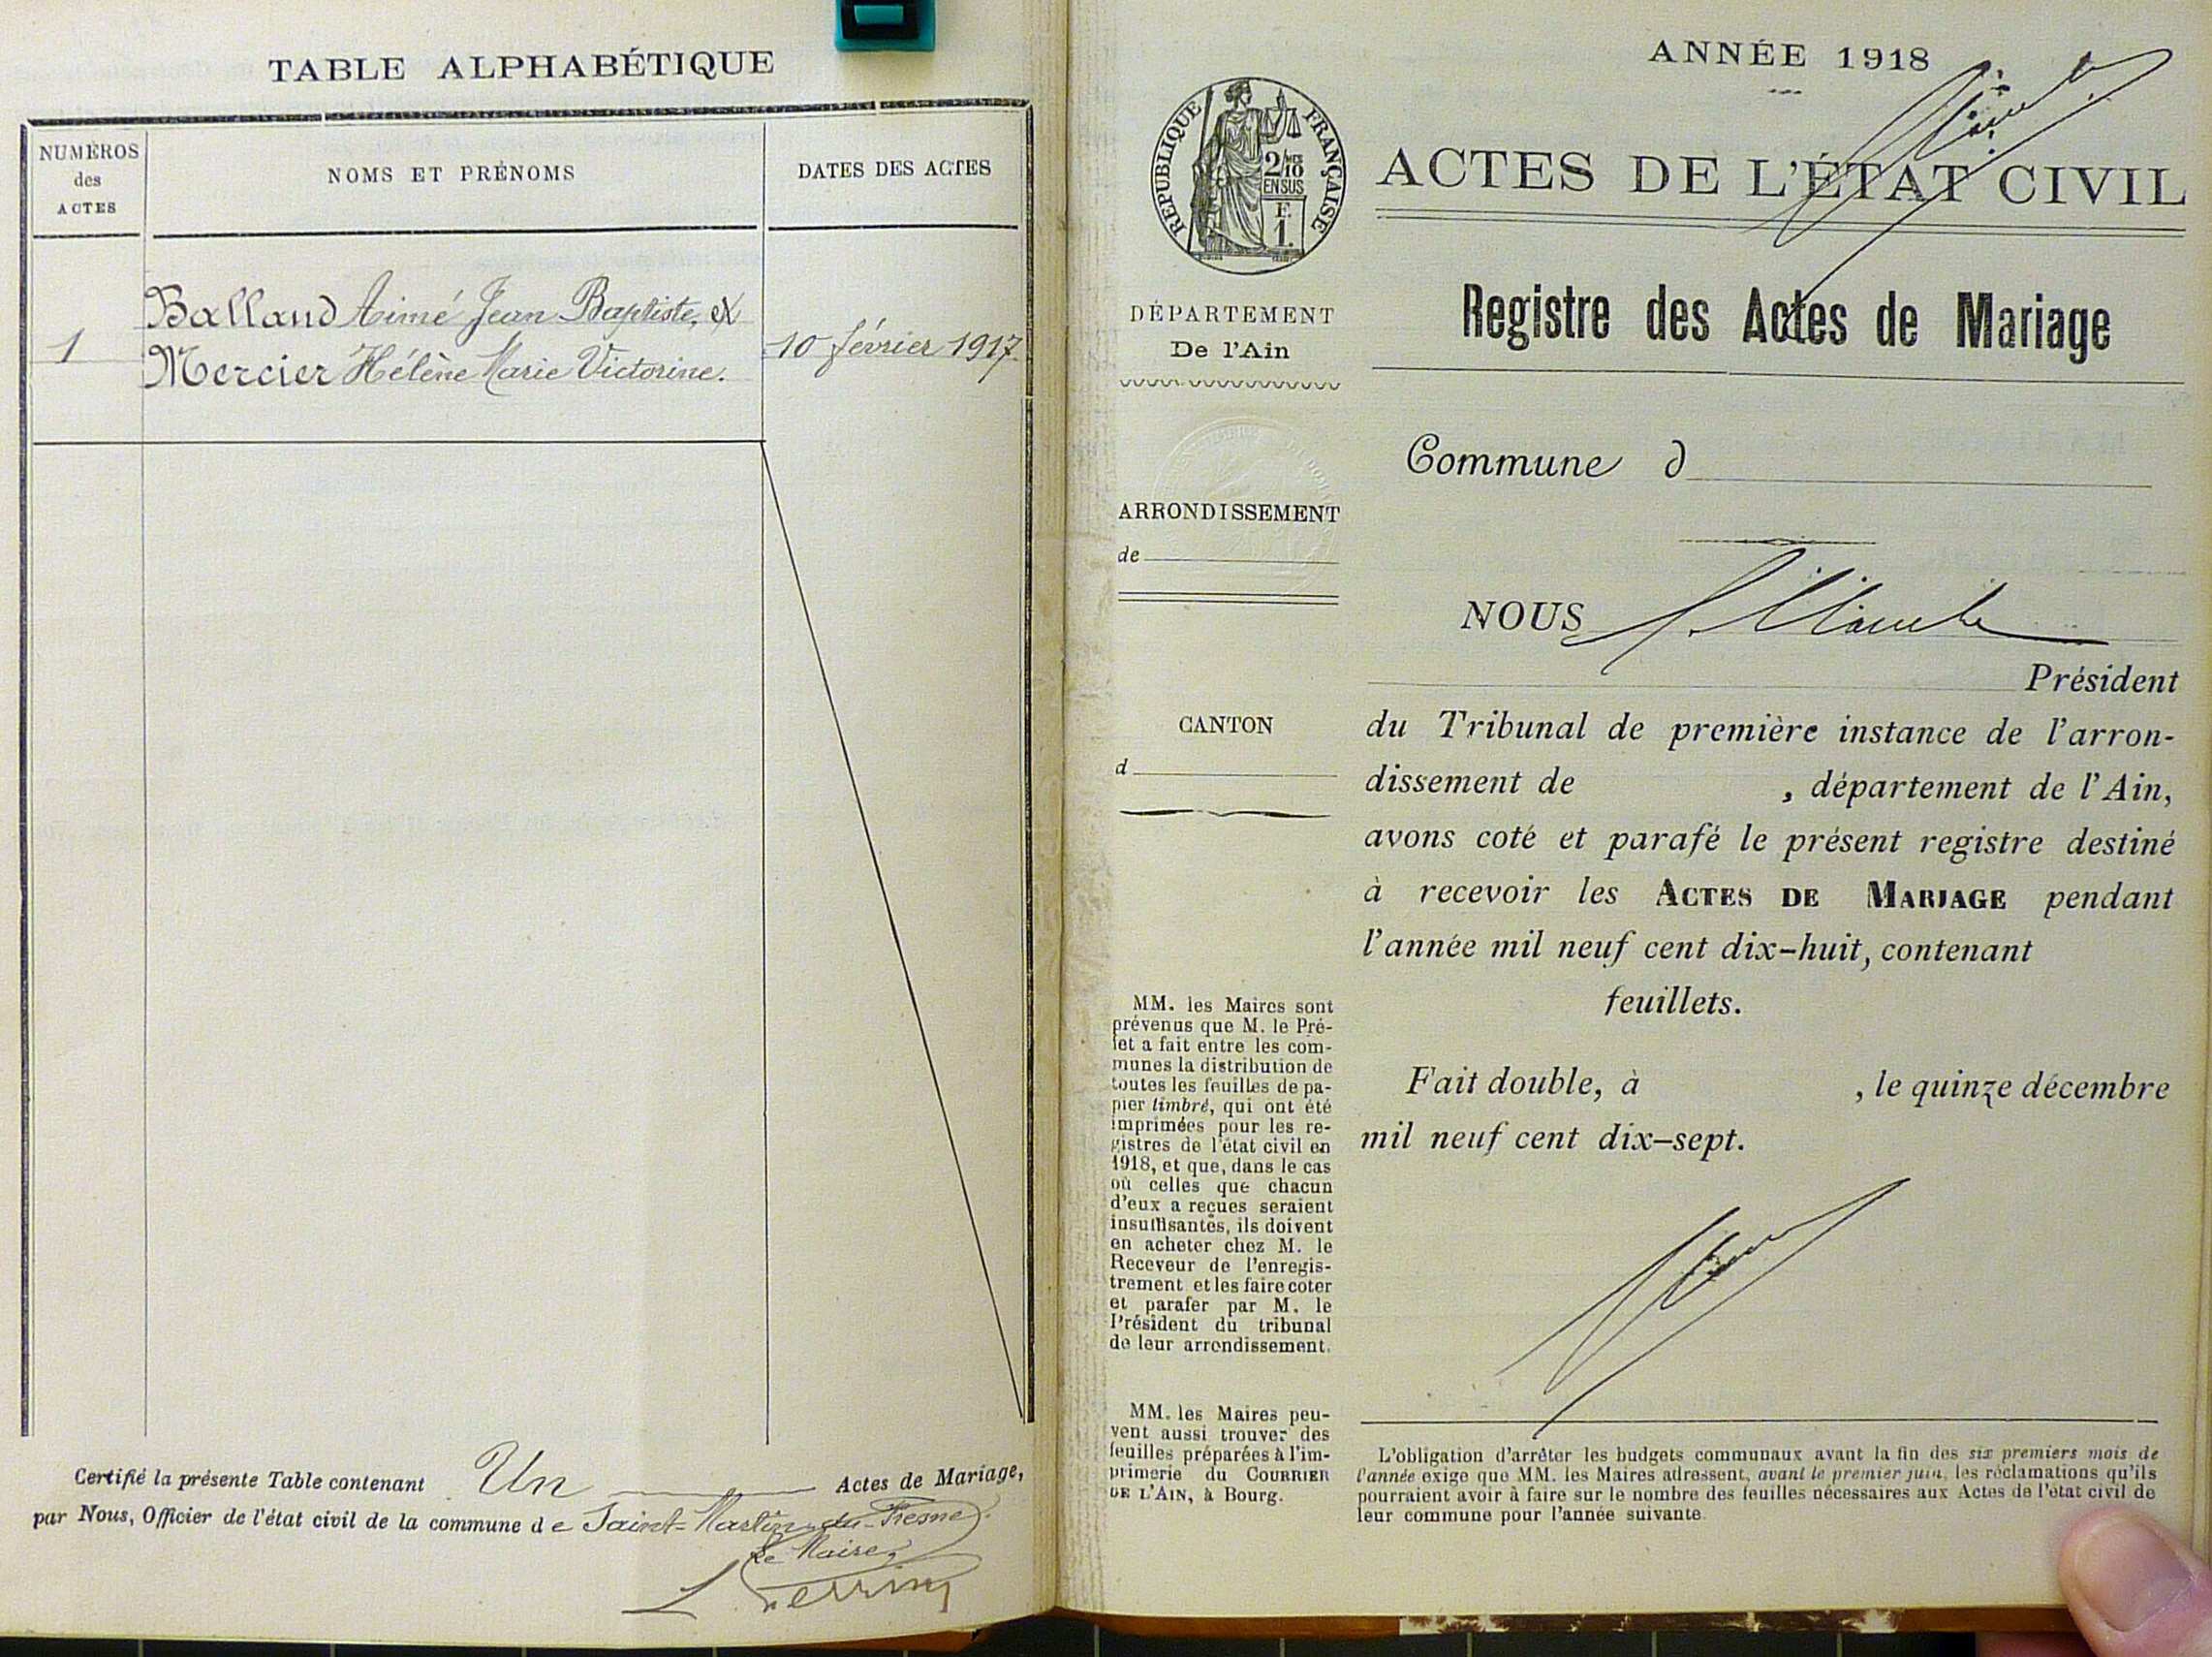 TABLE ALPHABÉTIQUE
NUMÉROS
des
ACTES
NOMS ET PRÉNOMS
DATES DES ACTES
1
Balland Aimé Jean Baptiste, et
Mercier Hélène Marie Victorine.
10 février 1917.
Certifié la présente Table contenant Un Actes de Mariage,
par Nous, Officier de l'état civil de la commune de Saint-Martin-du-Fresne.
Le Maire,
Perrin
ANNÉE 1918
RÉPUBLIQUE FRANÇAISE
2/10
EN SUS
F.
1.
ACTES DE L'ÉTAT CIVIL
Registre des Actes de Mariage
DÉPARTEMENT
De l'Ain
Commune d
ARRONDISSEMENT
de
NOUS
Président
CANTON
d
du Tribunal de première instance de l'arron-
dissement de , département de l'Ain,
avons coté et parafé le présent registre destiné
à recevoir les ACTES DE MARIAGE pendant
l'année mil neuf cent dix-huit, contenant
feuillets.
Fait double, à , le quinze décembre
mil neuf cent dix-sept.
MM. les Maires sont
prévenus que M. le Pré-
fet a fait entre les com-
munes la distribution de
toutes les feuilles de pa-
pier timbré, qui ont été
imprimées pour les re-
gistres de l'état civil en
1918, et que, dans le cas
où celles que chacun
d'eux a reçues seraient
insuffisantes, ils doivent
en acheter chez M. le
Receveur de l'enregis-
trement et les faire coter
et parafer par M. le
Président du tribunal
de leur arrondissement.
MM. les Maires peu-
vent aussi trouver des
feuilles préparées à l'im-
primerie du COURRIER
DE L'AIN, à Bourg.
L'obligation d'arrêter les budgets communaux avant la fin des six premiers mois de
l'année exige que MM. les Maires adressent, avant le premier juin, les réclamations qu'ils
pourraient avoir à faire sur le nombre des feuilles nécessaires aux Actes de l'état civil de
leur commune pour l'année suivante.